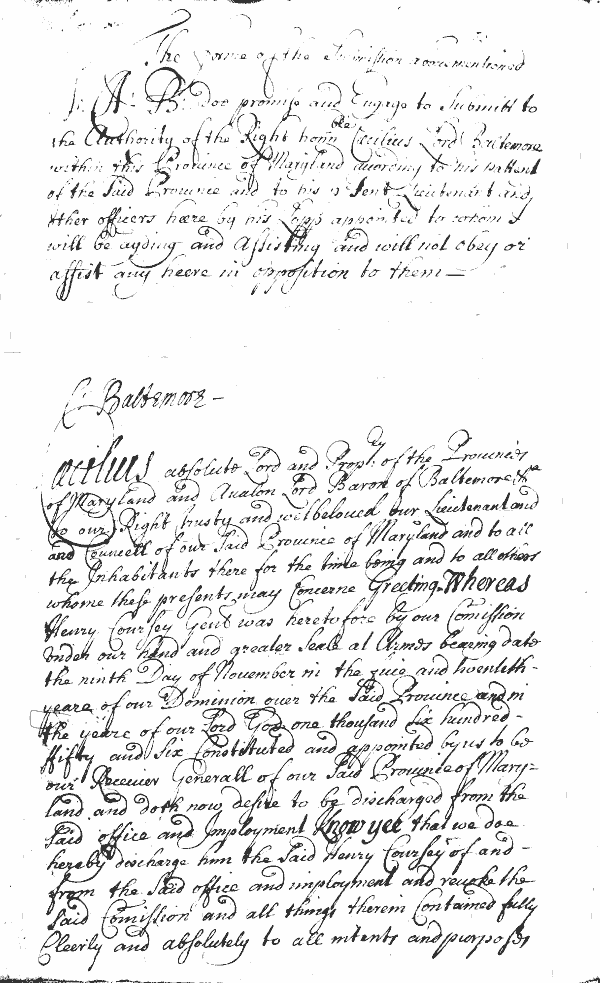 The forme of the Submission abovementioned
I: A: B: doe promise and Engage to Submitt to
the Authority of the Right honn ble Cæcilius Lord Baltemore
within this Province of Maryland according to his pattent
of the Said Province and to his p sent Lieutenant and
other officers heere by his Lopp appointed to whom I
will be ayding and Assisting and will not obey or
assist any heere in opposition to them —
C: Baltemore –
Cæcilius absolute Lord and Propr. ry of the Provinces
of Maryland and Avalon Lord Baron of Baltemore &ca
To our Right trusty and welbeloved our Lieutenant and
and Councell of our Said Province of Maryland and to all
the Inhabitants there for the time being and to all others
whome these presents may Concerne Greeting. Whereas
Henry Coursey Gent was heretofore by our Comission
under our hand and greater Seale at Armes bearing date
the ninth Day of November in the five and twentith-
yeare of our Dominion over the Said Province and in
the yeare of our Lord God one thousand Six hundred-
ffifty and Six Constituted and appointed by us to be
our Receiver Generall of our Said Province of Mary=
land and doth now desire to be discharged from the
Said office and Imployment Know yee that we doe
hereby discharge him the Said Henry Coursey of and-
from the Said office and imployment and revoke the
Said Comission and all things therein Contained fully
Cleerly and absolutely to all intents and purposes